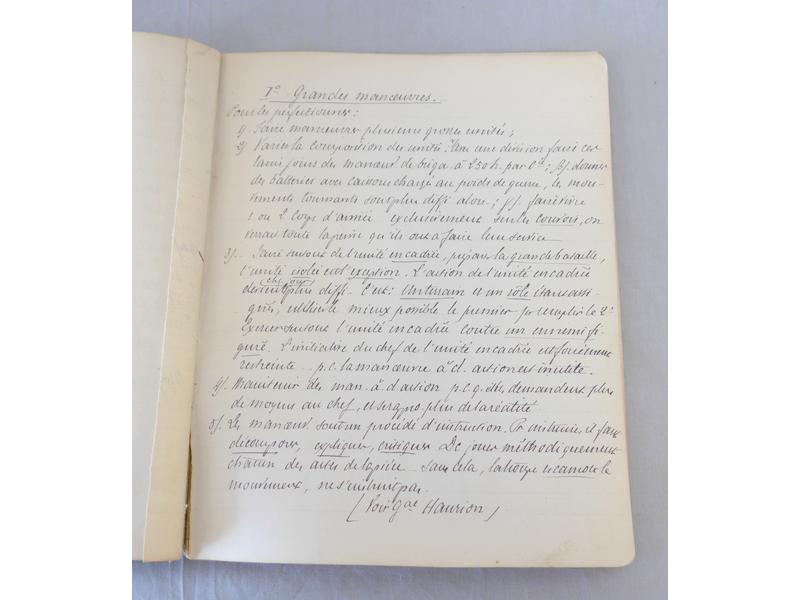 7º Grandes manœuvres.
Pour les perfectionner :
1/. Faire manœuvrer plusieurs grosses unités ;
2/ Varier la composition des unités : dans une division faire cer
tains jours des manœuv de briga à 250 h. par Cie ; β/. donner
des batteries avec caissons chargés au poids de guerre, les mou-
vements tournants sont plus diffi alors ; γ/. faire vivre
1 ou 2 corps d'armée exclusivement sur les convois, on
verrait toute la peine qu'ils ont à faire leur service
3/. Faire surtout de l'unité encadrée, puisque la grande bataille,
l'unité isolée est l'exception. L'action de l'unité encadrée
devient chq. jour plus diffi. C'est : Un terrain et un rôle étant assi-
gnés, utiliser le mieux possible le premier pr remplir le 2e
Exercer surtout l'unité encadrée contre un ennemi fi-
guré. L'initiative du chef de l'unité encadrée est forcément
restreinte p.c. la manœuvre à d. action est inutile.
4/. des man. à d. action p.c.q. elles demandent plus
de moyens au chef, et se rappro. plus de la réalité
5/. Les manœuv sont un procédé d'instruction. Pr instruire, il faut
découper, expliquer, critiquer De jouer méthodiquement
chacun des actes de la pièce. Sans cela, la troupe escamote le
mouvement, ne s'instruit pas.
(Voir Gal )